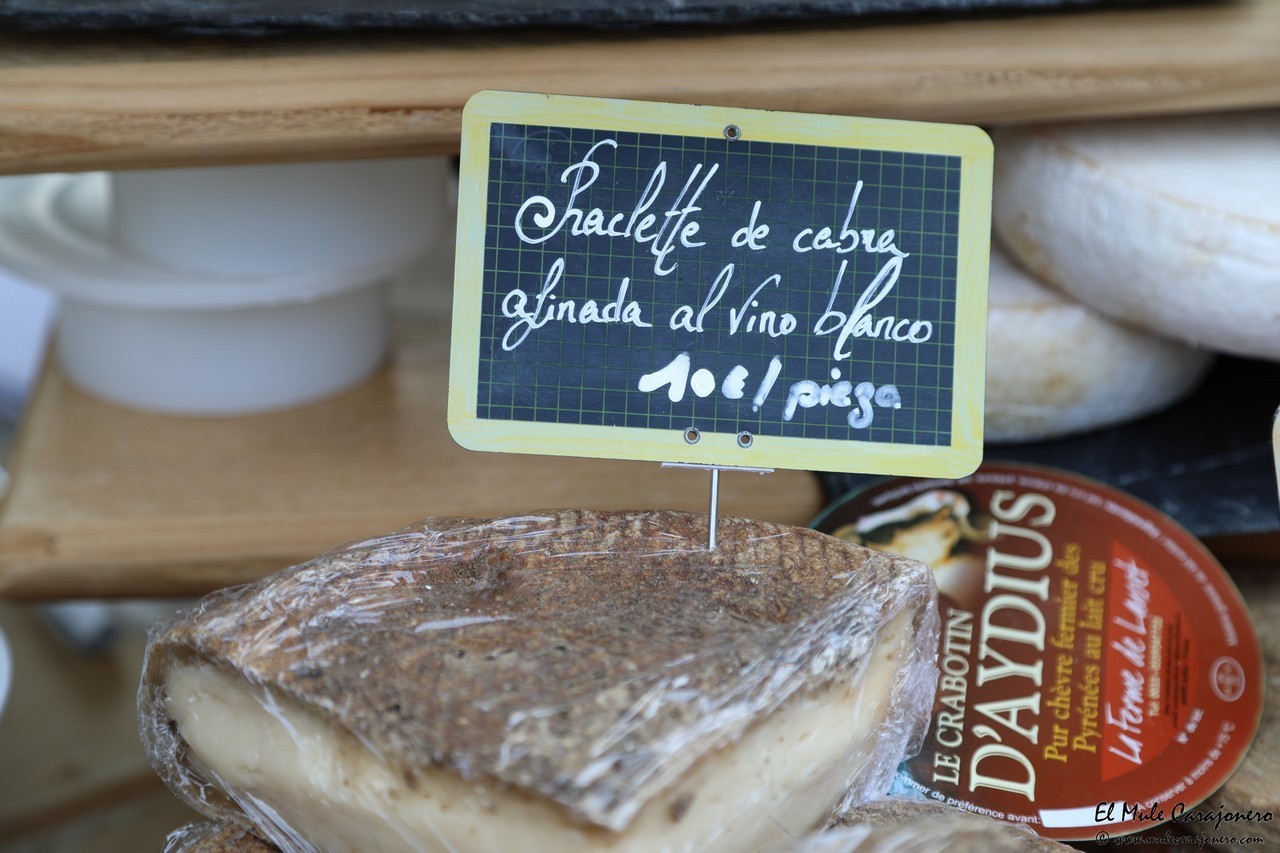 Rhaclette de cabra
afinada al vino blanco
10€/ pieza
LE CRABOTIN
D'AYDIUS
Pur chèvre fermier des
Pyrénées au lait cru
La Ferme de
de préférence avant:
à moins de
El Mule Carajonero
© www.mulecarajonero.com